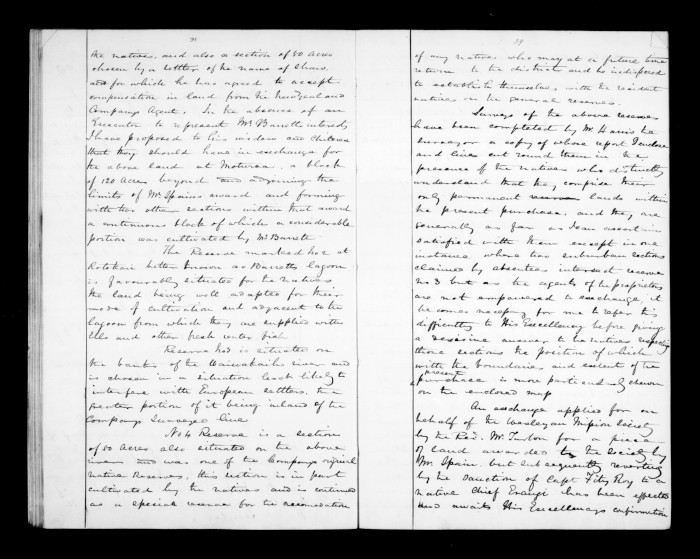 the natives, and also a section of 50 acres
chosen by a settler of the name of Shaw,
and for which he has agreed to accept
compensation in land from the New Zealand
Companys Agent. In the absence of an
Executor to represent Mr Barretts interests
I have proposed to his widow and children
that they should have in exchange for
the above land at Moturoa, a block
of 120 Acres beyond and adjoining the
limits of Mr Spains award and forming
with two other sections within that award
a continuous block of which a considerable
portion was cultivated by Mr Barrett
The Reserve marked No 2 at
Rotokari better known as Barretts lagoon
is favourably situated for the natives
the land being well adapted for their
mode of cultivation and adjacent to the
lagoon from which they are supplied with
Eels and other fresh water fish
Reserve No 3 is situated on
the banks of the Waiwakaiho river and
is chosen in a situation least likely to
interfere with European settlers, the
greater portion of it being inland of the
Companys Surveyed line
No 4 Reserve is a section
of 50 Acres also situated on the above
river and was one of the Companys original
native Reserves, this section is in part
cultivated by the natives and is continued
as a special reserve for the accomodation
39
of any natives who may at a future time
return to the district and be indisposed
to establish themselves with the resident
natives on the general reserves.
Surveys of the above reserves
have been completed by Mr Harris the
surveyor a copy of whose report I enclose
and lines cut round them in the
presence of the natives who distinctly
understand that they comprise their
only permanent lands within
the present purchase, and they are
generally as far as I can ascertain
satisfied with them except in one
instance where two suburban sections
claimed by absentees intersect reserve
No 3 but as the agents of the proprietors
are not empowered to exchange it
becomes necessary for me to refer this
difficulty to His Excellency before giving
a decisive answer to the natives respecting
those sections the position of which
with the boundaries and extent of the
present
purchase is more particularly shewn
on the enclosed map
An exchange applied for on
behalf of the Wesleyan Mission Society
by the Revd. Mr Turton for a piece
of land awarded to the Society by
Mr Spain but subsequently reverting
by the sanction of Capt Fitz Roy to a
native Chief has been effected
and awaits His Excellencys confirmation